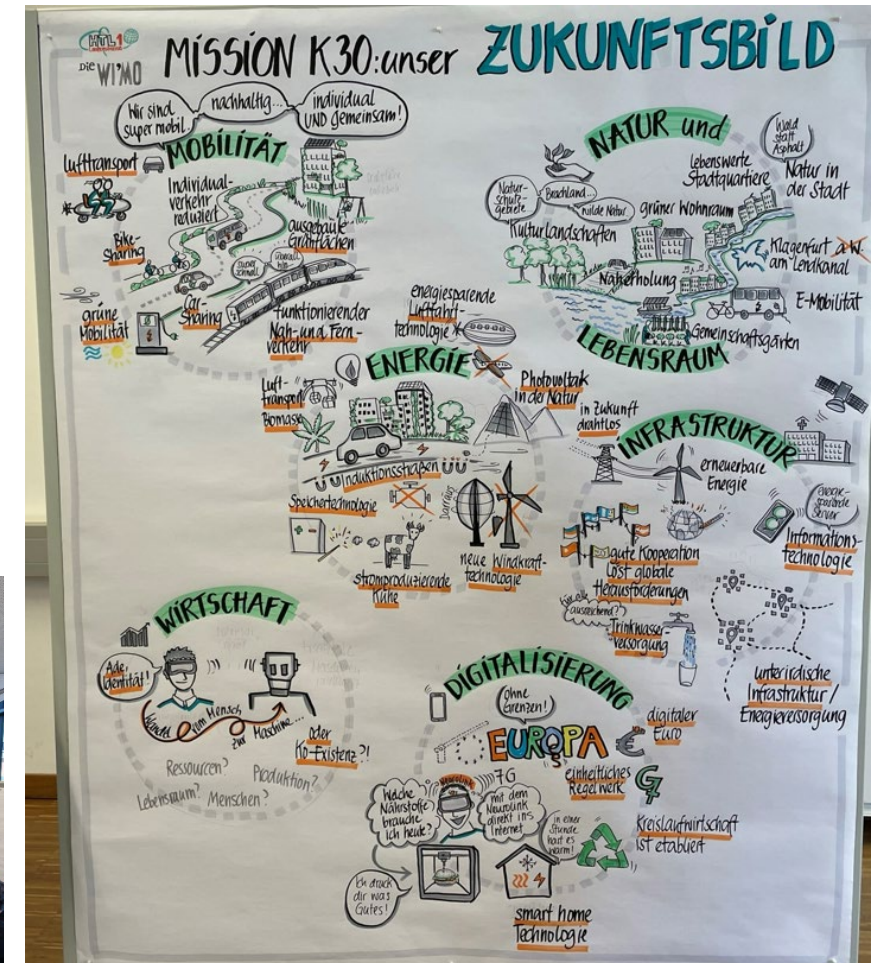 HTL1
Die WI'MO
MISSION K30: unser ZUKUNFTSBILD
Wir sind
super mobil..
nachhaltig...
individual
UND gemeinsam!
MOBILITÄT
Lufttransport
Individual-
verkehr
reduziert
Bike-
Sharing
ausgebaute
Grünflächen
super
schnell
überall
hin
Car-
Sharing
grüne
Mobilität
funktionierender
Nah- und Fern-
verkehr
NATUR und
LEBENSRAUM
Wald
statt
Asphalt
Lebenswerte
Stadtquartiere
Natur in
der Stadt
Natur-
schutz-
gebiete
Brachland...
wilde Natur
grüner Wohnraum
Kulturlandschaften
Klagenfurt a.W.
am Lendkanal
Naherholung
E-Mobilität
Gemeinschaftsgärten
energiesparende
Luftfahrt-
technologie
ENERGIE
Luft-
transport
Biomasse
Photovoltaik
in der Natur
Induktionsstraßen
Speichertechnologie
Darrieus
stromproduzierende
Kühe
neue Windkraft-
technologie
in Zukunft
drahtlos
INFRASTRUKTUR
erneuerbare
Energie
energie-
sparende
Server
Informations-
technologie
gute Kooperation
löst globale
Herausforderungen
ausreichend?
Trinkwasser-
versorgung
unterirdische
Infrastruktur/
Energieversorgung
WIRTSCHAFT
Ade,
Identität!
vom Mensch
zur Maschine...
oder
Ko-Existenz?!
Ressourcen?
Produktion?
Lebensraum?
Menschen?
DIGITALISIERUNG
ohne
Grenzen!
EUROPA
€
digitaler
Euro
einheitliches
Regelwerk
G7
7G
Neurolink
Welche
Nährstoffe
brauche
ich heute?
mit dem
Neurolink
direkt ins
Internet
in einer
Stunde
hast es
warm!
Kreislaufwirtschaft
ist etabliert
Ich druck
dir was
Gutes!
smart home
Technologie